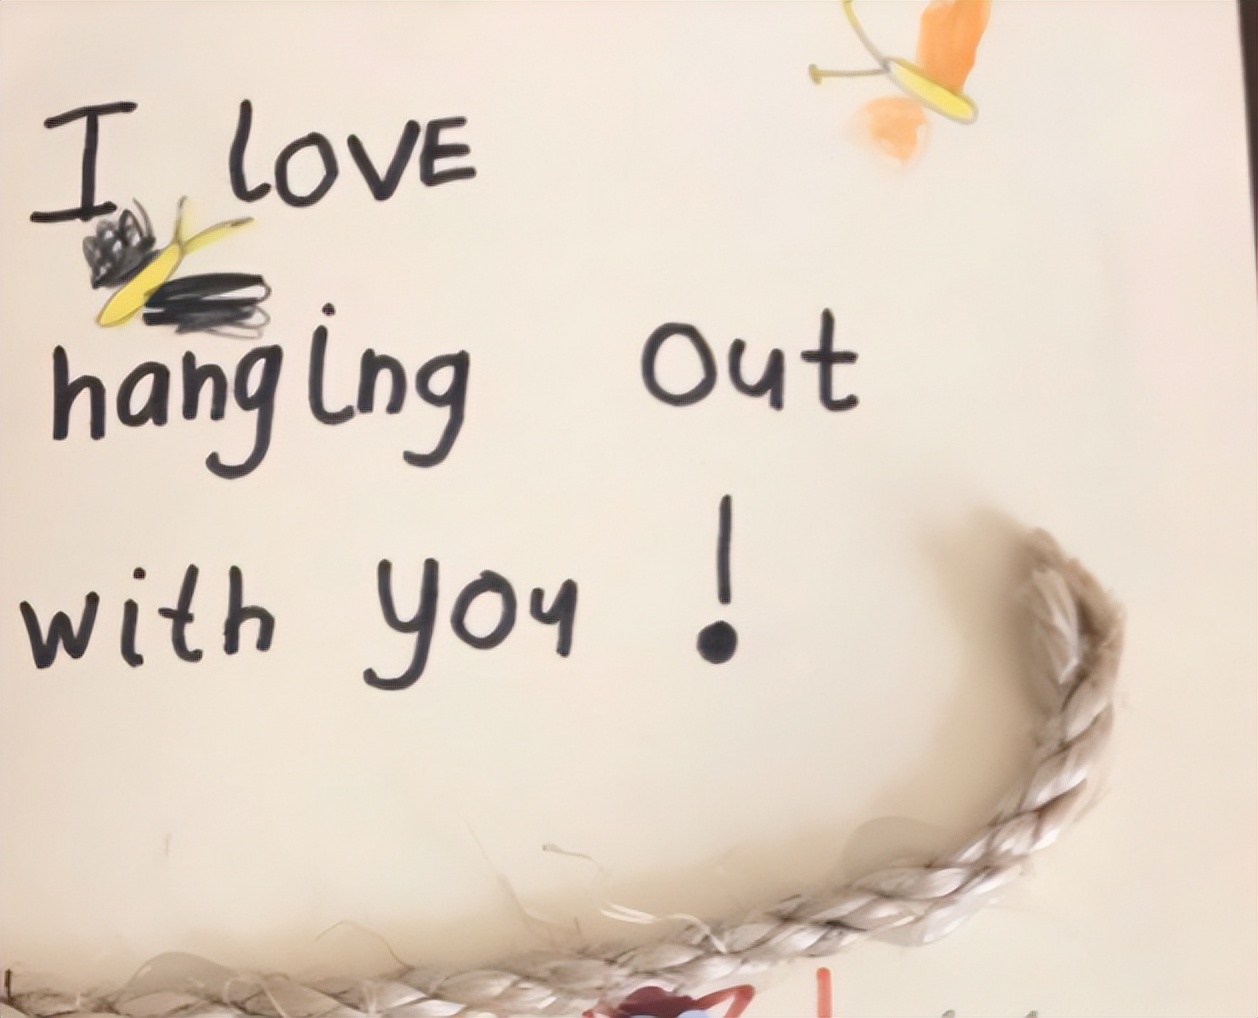 I LOVE
hanging out
with you !